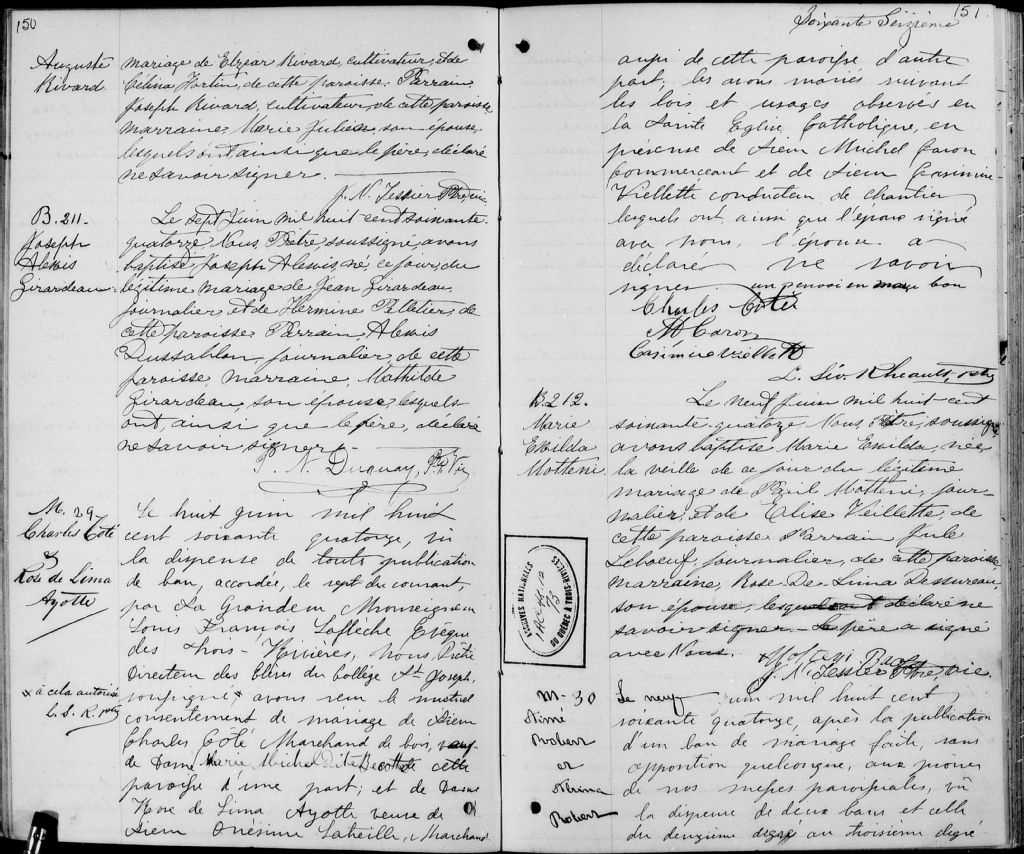 150
Auguste
Rivard
mariage de Elzéar Rivard, cultivateur, et de
Célina Fortin, de cette paroisse. Parrain
Joseph Rivard, cultivateur, de cette paroisse,
marraine, Marie Julien, son épouse,
lesquels ont ainsi que le père, déclaré
ne savoir signer.
J. N. Tessier Ptre vic
B. 211.
Joseph
Alexis
Girardeau
Le sept Juin mil huit cent soixante
quatorze, Nous Prêtre, soussigné, avons
baptisé, Joseph Alexis, né ce jour, du
légitime mariage de Jean Girardeau,
journalier, et de Hermine Pelletier, de
cette paroisse. Parrain, Alexis
Dussablon, journalier, de cette
paroisse, marraine, Mathilde
Girardeau, son épouse, lesquels
ont, ainsi que le père, déclaré
ne savoir signer.
P. N. Duguay, Ptre Vic
M. 29
Charles Coté
&
Rose de Lima
Ayotte
Le huit juin mil huit
cent soixante quatorze, vu
la dispense de touts publication
de ban, accordée, le sept du courant,
par Sa Grandeur Monseigneur
Louis François Laflèche Evêque
des Trois-Rivières, Nous, Prêtre
Directeur des Elèves du Collège St Joseph,
soussigné * avons reçu le mutuel
consentement de mariage de Sieur
Charles Coté Marchand de bois, veuf
de Dame Marie Michel Dite de cette
paroisse d'une part; et de Dame
Rose de Lima Ayotte veuve de
Sieur Onésime Lateille, Marchand
* à cela autorisé
L. S. R. ptre
151.
Soixante Seizième
aussi de cette paroisse d'autre
part, les avons mariés suivant
les lois et usages observés en
la Sainte Eglise Catholique, en
présense de Sieur Michel Caron
Commercant et de Sieur Casimire
Veillette conducteur de chantier,
lesquels ont, ainsi que l'époux signé
avec nous, l'épouse a
déclaré ne savoir
signer. un renvoi en marge bon
Charles Coté
M Caron
Casimire Veillette
L. Sév. Rheault, ptre
B. 212.
Marie
Exilda
Motteni
Le neuf Juin mil huit cent
soixante quatorze, Nous Ptre, soussigné,
avons baptisé Marie Exilda, née
la veille de ce jour du légitime
mariage de Paul Motteni, jour-
nalier, et de Elise Veillette, de
cette paroisse. Parrain Jule
Leboeuf, journalier, de cette paroisse,
marraine, Rose De Lima Lessureau,
son épouse, lesquels ont déclaré ne
savoir signer. Le père a signé
avec Nous.
J. N. Tessier Ptre, vic.
ARCHIVES NATIONALES
DU QUÉBEC À TROIS-RIVIÈRES
M-30
Aimé
Robert
et
Robert
Le neuf juin mil huit cent
soixante quatorze, après la publication
d'un ban de mariage faite, sans
opposition quelconque, aux prones
de nos messes paroissiales, vû
la dispense de deux bans et celle
du deuxième degré au troisième degré